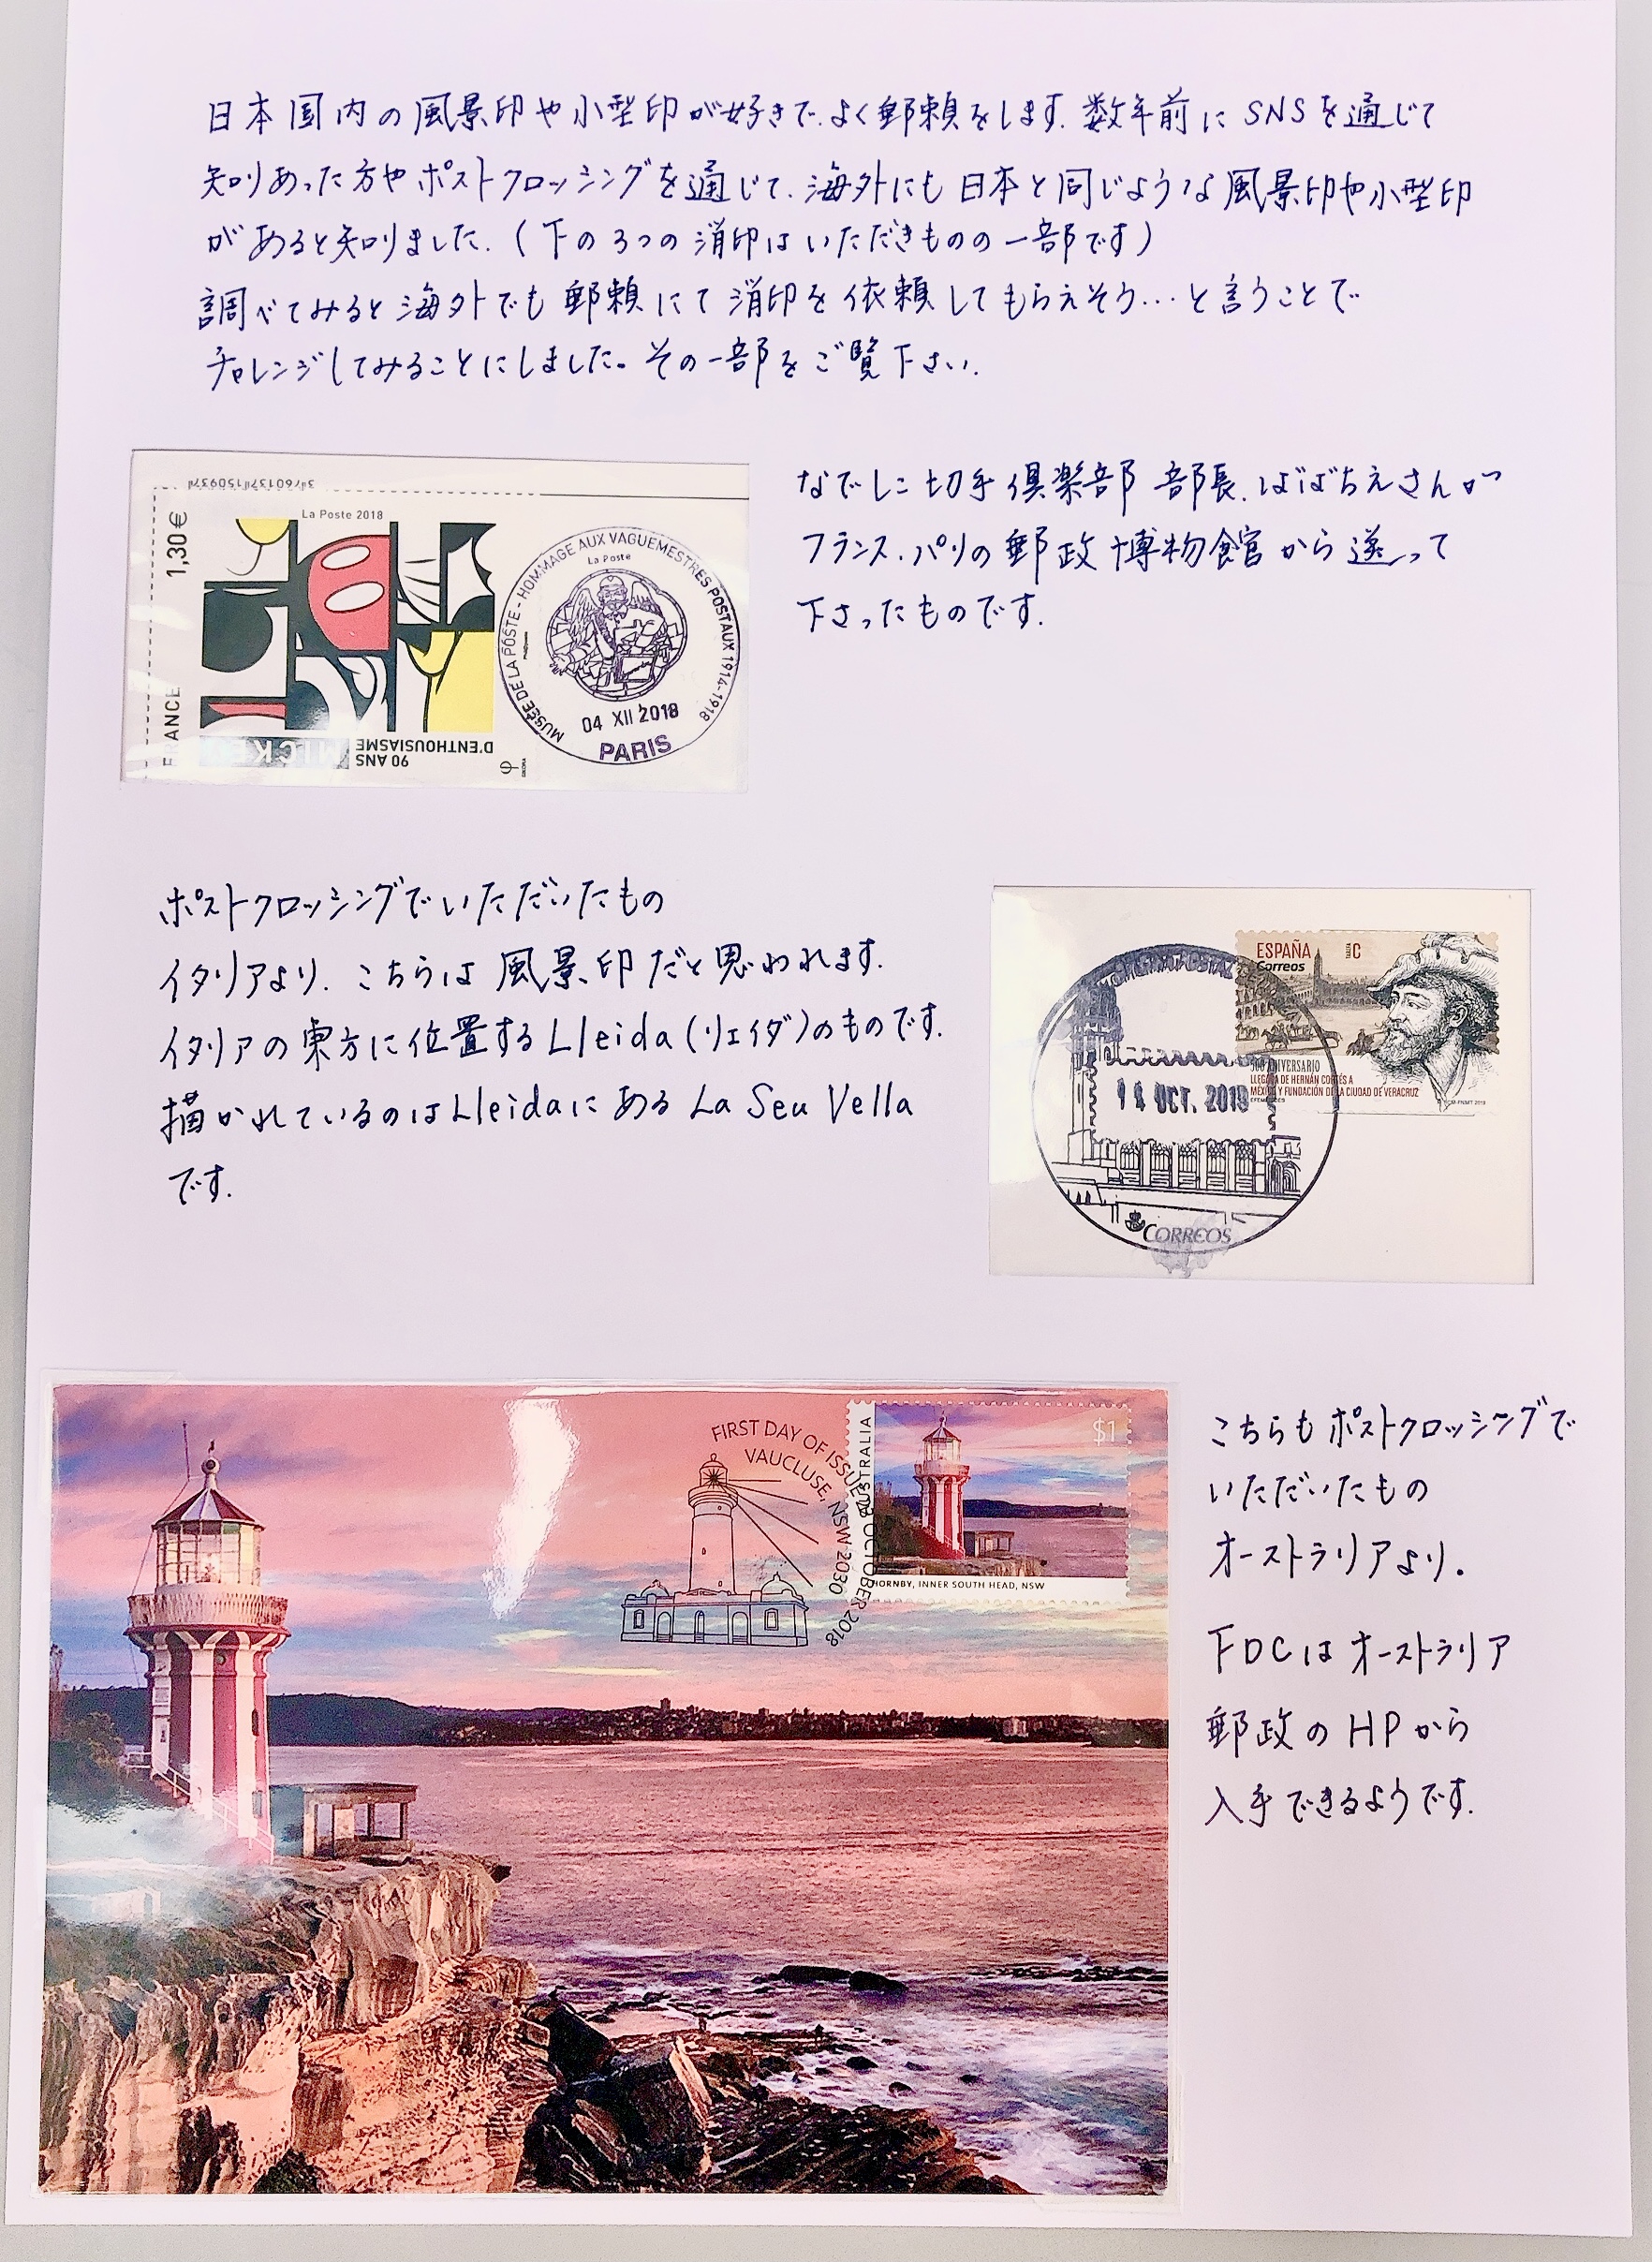 日本国内の風景印や小型印が好きで、よく郵頼をします。数年前にSNSを通じて
知りあった方やポストクロッシングを通じて、海外にも日本と同じような風景印や小型印
があると知りました。(下の3つの消印はいただきものの一部です)
調べてみると海外でも郵頼にて消印を依頼してもらえそう…と言うことで
チャレンジしてみることにしました。その一部をご覧下さい。
La Poste 2018
1,30 €
FRANCE
90 ANS
D'ENTHOUSIASME
MUSÉE DE LA POSTE - HOMMAGE AUX VAGUEMESTRES POSTAUX 1914-1918
La Poste
04 XII 2018
PARIS
なでしこ切手倶楽部 部長、ばばちえさんが
フランス、パリの郵政博物館から送って
下さったものです。
ポストクロッシングでいただいたもの
イタリアより。こちらは風景印だと思われます。
イタリアの東方に位置するLleida(リェイダ)のものです。
描かれているのはLleidaにあるLa Seu Vella
です。
ESPAÑA
Correos
C
ANIVERSARIO
LLEGADA DE HERNÁN CORTÉS A
MÉXICO Y FUNDACIÓN DE LA CIUDAD DE VERACRUZ
14 OCT. 2019
CORREOS
FIRST DAY OF ISSUE
VAUCLUSE, NSW 2030
OCTOBER 2018
AUSTRALIA
$1
HORNBY, INNER SOUTH HEAD, NSW
こちらもポストクロッシングで
いただいたもの
オーストラリアより。
FDCはオーストラリア
郵政のHPから
入手できるようです。